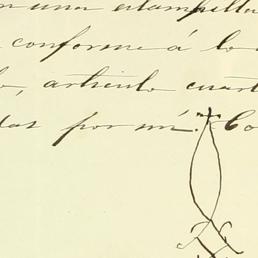 n una estampilla
conforme á lo
o, artículo cuart
das por mí. Co